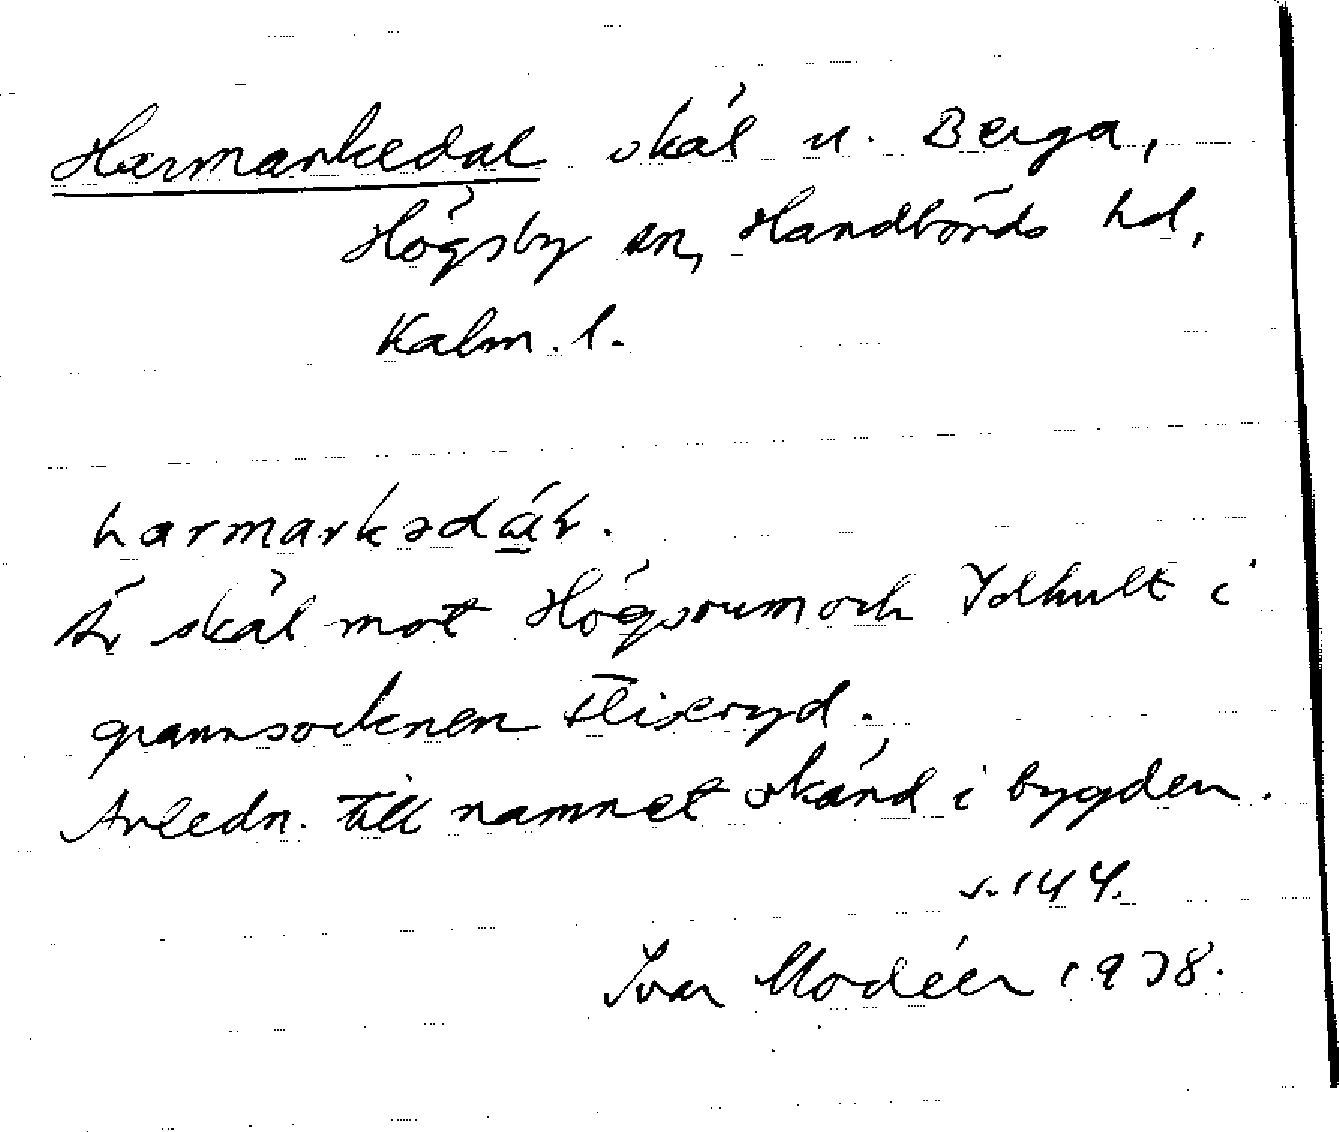 Harmarkedal skål u. Berga,
Högsby sn, Handbörds hd,
Kalm. l.
harmarkədáɫ.
Är skål mot Högsrum och Idhult i
grannsocknen Fliseryd.
Avledn. till namnet okänd i bygden.
s. 144.
Ivar Modéer 1938.